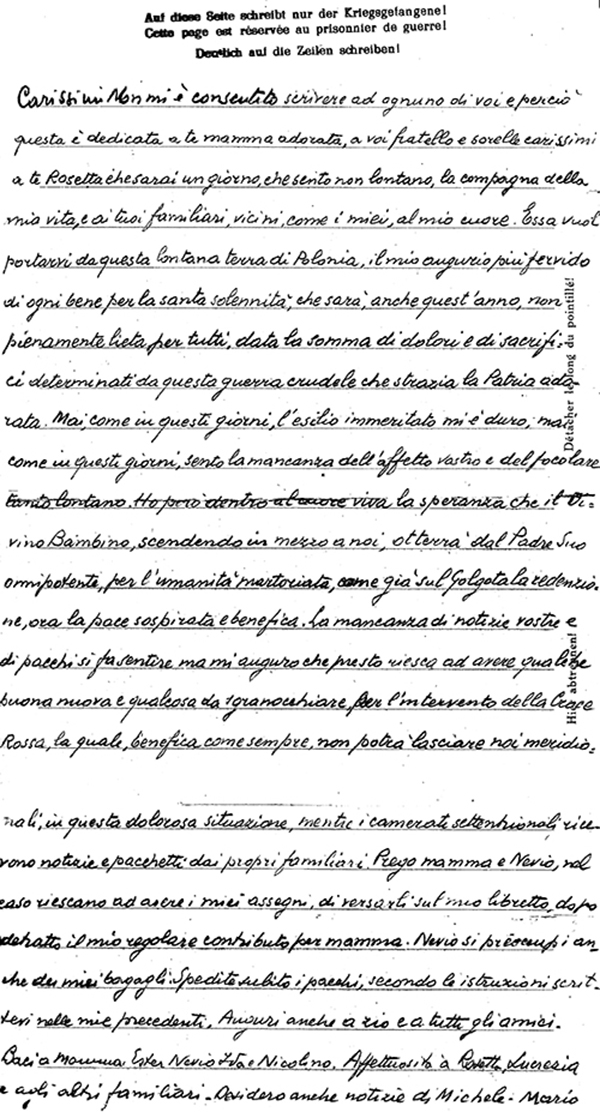 Auf diese Seite schreibt nur der Kriegsgefangene!
Cette page est réservée au prisonnier de guerre!
Deutlich auf die Zeilen schreiben!
Carissimi Non mi è consentito scrivere ad ognuno di voi e perciò
questa è dedicata a te mamma adorata, a voi fratello e sorelle carissimi
a te Rosetta che sarai un giorno, che sento non lontano, la compagna della
mia vita, e ai tuoi familiari, vicini, come i miei, al mio cuore. Essa vuol
portarvi da questa lontana terra di Polonia, il mio augurio più fervido
di ogni bene per la santa solennità, che sarà, anche quest'anno, non
pienamente lieta, per tutti, data la somma di dolori e di sacrifi=
ci determinati da questa guerra crudele che strazia la Patria ado=
rata. Mai, come in questi giorni, l'esilio immeritato mi è duro, mai
come in questi giorni, sento la mancanza dell'affetto vostro e del focolare
tanto lontano. Ho però dentro al cuore viva la speranza che il Di=
vino Bambino, scendendo in mezzo a noi, otterrà dal Padre Suo
onnipotente, per l'umanità martoriata, come già sul Golgota la redenzio=
ne, ora la pace sospirata e benefica. La mancanza di notizie vostre e
di pacchi si fa sentire ma mi auguro che presto riesca ad avere qualche
buona nuova e qualcosa da sgranocchiare, per l'intervento della Croce
Rossa, la quale, benefica come sempre, non potrà lasciare noi meridio=
nali, in questa dolorosa situazione, mentre i camerati settentrionali rice=
vono notizie e pacchetti dai propri familiari. Prego mamma e Nevio, nel
caso riescano ad avere i miei assegni, di versarli sul mio libretto, dopo
detratto il mio regolare contributo per mamma. Nevio si preoccupi an=
che dei miei bagagli. Spedite subito i pacchi, secondo le istruzioni scrit=
tevi nelle mie precedenti. Auguri anche a zio e a tutti gli amici.
Baci a Mamma Ester Nevio Ida e Nicolino. Affettuosità a Rosetta, Lucrezia
e agli altri familiari. Desidero anche notizie di Michele. Mario
Détacher le long du pointillé!
Hier abtrennen!